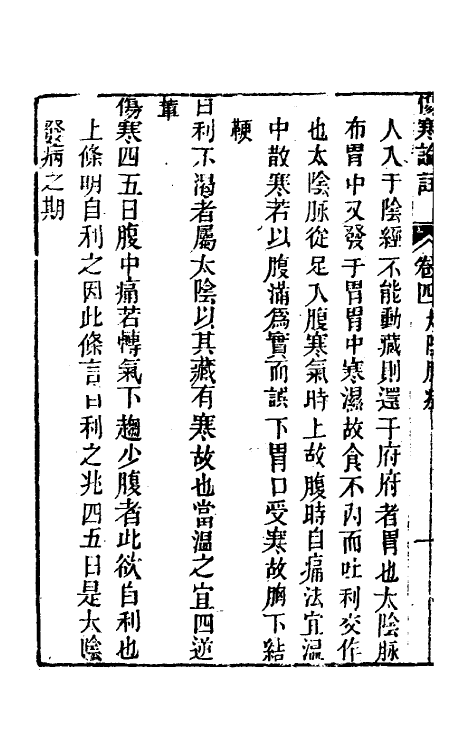 傷寒論註 卷四 太陰脈
人入于陰經不能動藏則還于府府者胃也太陰脈
布胃中又發于胃胃中寒濕故食不內而吐利交作
也太陰脈從足入腹寒氣時上故腹時自痛法宜溫
中散寒若以腹滿爲實而誤下胃口受寒故胸下結
鞕
自利不渴者屬太陰以其藏有寒故也當溫之宜四逆
輩
傷寒四五日腹中痛若轉氣下趨少腹者此欲自利也
上條明自利之因此條言自利之兆四五日是太陰
發病之期